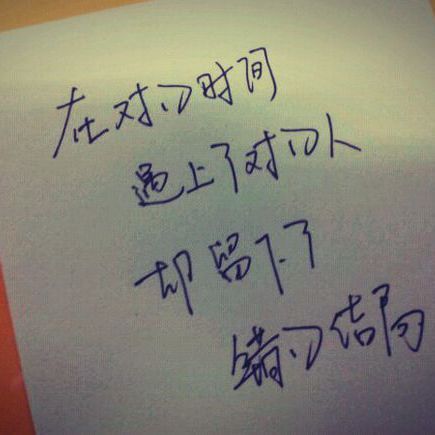 在对的时间
遇上了对的人
却留下了
错的结局